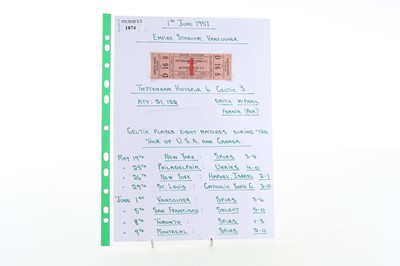 McTear's
1874
1st June 1957
Empire Stadium Vancouver
D 16 8
D 16 8
Tottenham Hotspur 6 Celtic 3
Att: 21,122
Smith McPhail
Fernie (Pen)
Celtic played eight matches during the
tour of U.S.A. and Canada.
May 19th New York: Spurs 3-4
- 25th Philadelphia: Uhriks 4-0
- 26th New York: Hapoel, Israel 2-1
- 29th St. Louis: Catholic Youth G 3-0
June 1st Vancouver: Spurs 3-6
- 5th San Francisco: Select 5-0
- 8th Toronto: Spurs 1-3
- 9th Montreal: Spurs 2-0